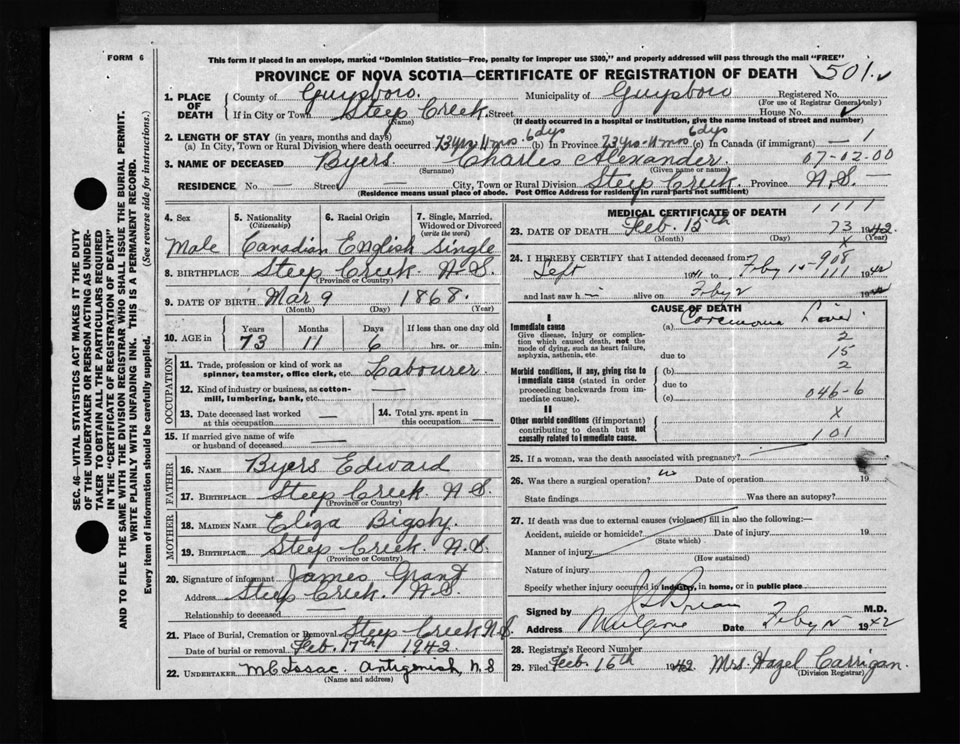 FORM 6
This form if placed in an envelope, marked "Dominion Statistics—Free, penalty for improper use $300," and properly addressed will pass through the mail "FREE"
PROVINCE OF NOVA SCOTIA—CERTIFICATE OF REGISTRATION OF DEATH 501
1. PLACE OF DEATH County of Guysboro. Municipality of Guysboro Registered No.
(For use of Registrar General only)
If in City or Town Steep Creek Street House No.
(Name) (If death occurred in a hospital or institution, give the name instead of street and number)
2. LENGTH OF STAY (in years, months and days)
(a) In City, Town or Rural Division where death occurred 73 yrs 11 mos 6 dys (b) In Province 73 yrs 11 mos 6 dys (c) In Canada (if immigrant) — 1
3. NAME OF DECEASED Byers Charles Alexander. 07-02-00
(Surname) (Given name or names)
RESIDENCE No. — Street — City, Town or Rural Division Steep Creek. Province N.S. —
(Residence means usual place of abode. Post Office Address for residents in rural parts not sufficient)
4. Sex
Male
5. Nationality
(Citizenship)
Canadian
6. Racial Origin
English
7. Single, Married, Widowed or Divorced
(write the word)
Single
8. BIRTHPLACE Steep Creek N.S.
(Province or Country)
9. DATE OF BIRTH Mar 9 1868.
(Month) (Day) (Year)
10. AGE in Years Months Days If less than one day old
73 11 6 hrs. or min.
OCCUPATION
11. Trade, profession or kind of work as spinner, teamster, office clerk, etc. Labourer.
12. Kind of industry or business, as cotton-mill, lumbering, bank, etc. —
13. Date deceased last worked at this occupation —
14. Total yrs. spent in this occupation —
15. If married give name of wife or husband of deceased —
FATHER
16. NAME Byers Edward
17. BIRTHPLACE Steep Creek N.S.
(Province or Country)
MOTHER
18. MAIDEN NAME Eliza Bigsby.
19. BIRTHPLACE Steep Creek. N.S.
(Province or Country)
20. Signature of informant James Grant
Address Steep Creek. N.S.
Relationship to deceased —
21. Place of Burial, Cremation or Removal Steep Creek N.S.
Date of burial or removal Feb. 17th 1942.
22. UNDERTAKER McIsaac. Antigonish, N.S
(Name and address)
MEDICAL CERTIFICATE OF DEATH 1111
23. DATE OF DEATH Feb. 15th 73 1942
(Month) (Day) (Year)
x
24. I HEREBY CERTIFY that I attended deceased from 908
Sept 1941 to Feby 15 111 1942
and last saw h alive on Feby 2 19
CAUSE OF DEATH
I
Immediate cause
Give disease, injury or complication which caused death, not the mode of dying, such as heart failure, asphyxia, asthenia, etc.
(a) Carcinoma Liver
2
due to 15
Morbid conditions, if any, giving rise to immediate cause (stated in order proceeding backwards from immediate cause).
(b) 2
due to
(c) 046-6
II
Other morbid conditions (if important) contributing to death but not causally related to immediate cause.
x
101
25. If a woman, was the death associated with pregnancy?
26. Was there a surgical operation? no Date of operation 19
State findings Was there an autopsy?
27. If death was due to external causes (violence) fill in also the following:—
Accident, suicide or homicide? Date of injury 19
(State which)
Manner of injury
(How sustained)
Nature of injury
Specify whether injury occurred in industry, in home, or in public place
Signed by M.D.
Address Mulgrave Date Feby 15 1942
28. Registrar's Record Number
29. Filed Feb. 16th 1942 Mrs. Hazel Carrigan.
(Division Registrar)
SEC. 46—VITAL STATISTICS ACT MAKES IT THE DUTY
OF THE UNDERTAKER OR PERSON ACTING AS UNDER-
TAKER TO OBTAIN ALL THE PARTICULARS REQUIRED
IN THE "CERTIFICATE OF REGISTRATION OF DEATH"
AND TO FILE THE SAME WITH THE DIVISION REGISTRAR WHO SHALL ISSUE THE BURIAL PERMIT.
WRITE PLAINLY WITH UNFADING INK. THIS IS A PERMANENT RECORD.
Every item of information should be carefully supplied. (See reverse side for instructions.)